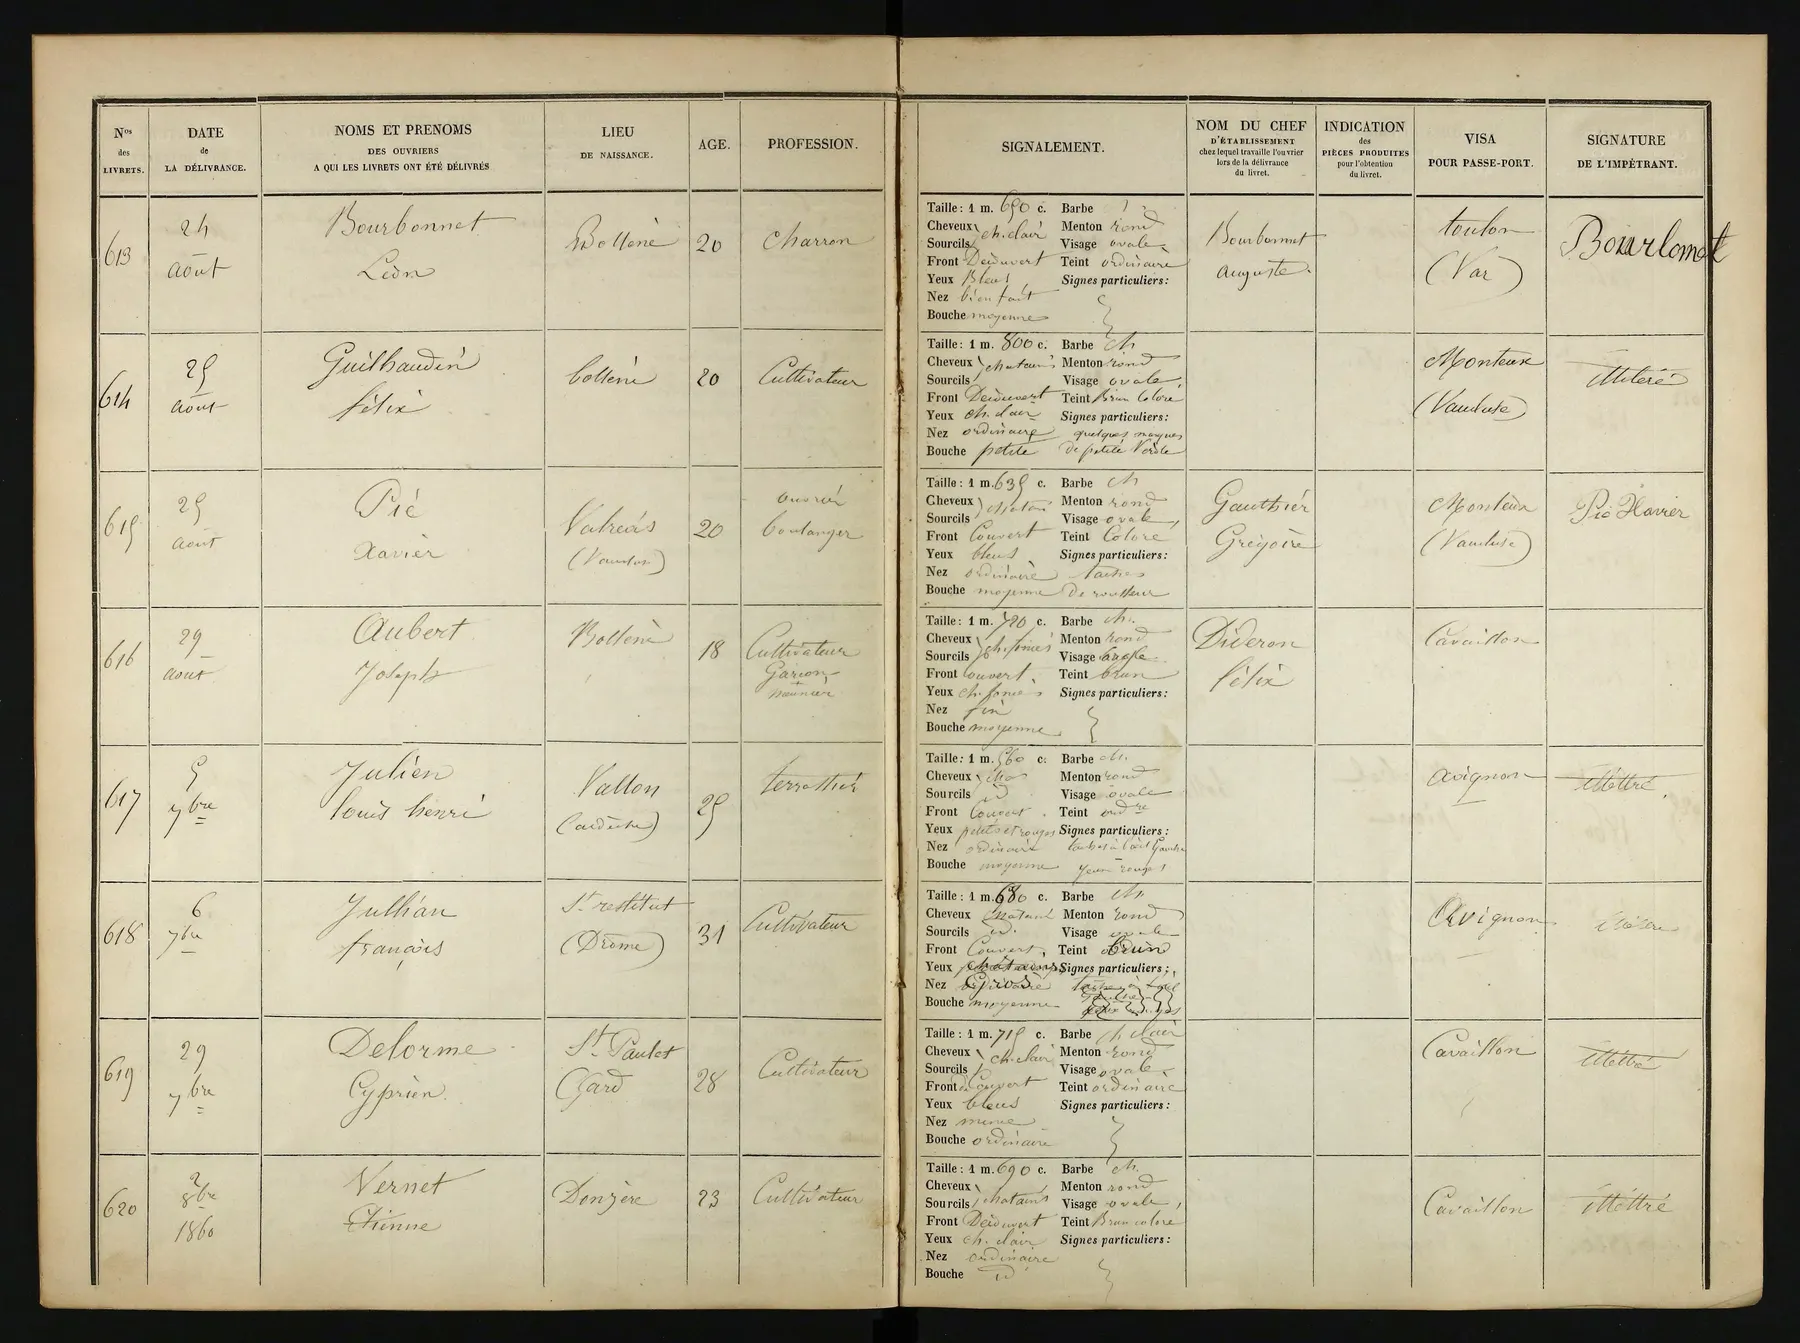 Nos des LIVRETS.
DATE de LA DÉLIVRANCE.
NOMS ET PRENOMS DES OUVRIERS A QUI LES LIVRETS ONT ÉTÉ DÉLIVRÉS
LIEU DE NAISSANCE.
AGE.
PROFESSION.
SIGNALEMENT.
NOM DU CHEF D'ÉTABLISSEMENT chez lequel travaille l'ouvrier lors de la délivrance du livret.
INDICATION des PIÈCES PRODUITES pour l'obtention du livret.
VISA POUR PASSE-PORT.
SIGNATURE DE L'IMPÉTRANT.
613
24 août
Bourbonnet
Léon
Bollène
20
Charron
Taille : 1 m. 650 c. Barbe
Cheveux Sourcils ch. clair Menton rond
Visage ovale
Front Découvert Teint ordinaire
Yeux Bleus Signes particuliers :
Nez bien fait
Bouche moyenne
Bourbonnet
Auguste
toulon
(Var)
614
25 août
Guilhaudin
félix
bollène
20
Cultivateur
Taille : 1 m. 800 c. Barbe ch
Cheveux Sourcils chatains Menton rond
Visage ovale
Front Découvert Teint Brun Coloré
Yeux ch. clair Signes particuliers :
Nez ordinaire quelques marques
Bouche petite de petite Verole
Monteux
(Vaucluse)
615
25 août
Pié
Xavier
Valréas
(Vaucluse)
20
ouvrier
boulanger
Taille : 1 m. 635 c. Barbe ch
Cheveux Sourcils chatain Menton rond
Visage ovale
Front Couvert Teint Coloré
Yeux bleus Signes particuliers :
Nez ordinaire taches
Bouche moyenne de rousseur
Gauthier
Grégoire
Monteux
(Vaucluse)
Pié Xavier
616
29 août
Aubert
Joseph
Bollène
18
Cultivateur
Garçon
meunier
Taille : 1 m. 720 c. Barbe ch.
Cheveux Sourcils ch. foncés Menton rond
Visage
Front couvert Teint brun
Yeux ch. foncés Signes particuliers :
Nez fin
Bouche moyenne
Dideron
félix
Cavaillon
617
5 7bre
Julien
louis henri
Vallon
(ardèche)
25
terrassier
Taille : 1 m. 560 c. Barbe ch.
Cheveux Menton rond
Sourcils id Visage ovale
Front Couvert Teint ordre
Yeux petits et rouges Signes particuliers :
Nez ordinaire
Bouche moyenne yeux rouges
avignon
illettré
618
6 7bre
Jullian
françois
St restitut
(Drôme)
31
Cultivateur
Taille : 1 m. 680 c. Barbe ch
Cheveux chatain Menton rond
Sourcils id. Visage ovale
Front Couvert Teint brun
Yeux Signes particuliers :
Nez
Bouche moyenne
Avignon
619
29 7bre
Delorme
Cyprien
St Paulet
Gard
28
Cultivateur
Taille : 1 m. 715 c. Barbe ch clair
Cheveux Sourcils ch. clair Menton rond
Visage ovale
Front découvert Teint ordinaire
Yeux bleus Signes particuliers :
Nez
Bouche ordinaire
Cavaillon
illettré
620
2 8bre 1860
Vernet
Etienne
Donzère
23
Cultivateur
Taille : 1 m. 690 c. Barbe ch.
Cheveux Sourcils chatains Menton rond
Visage ovale
Front Découvert Teint Brun coloré
Yeux ch. clair Signes particuliers :
Nez ordinaire
Bouche id
Cavaillon
illettré